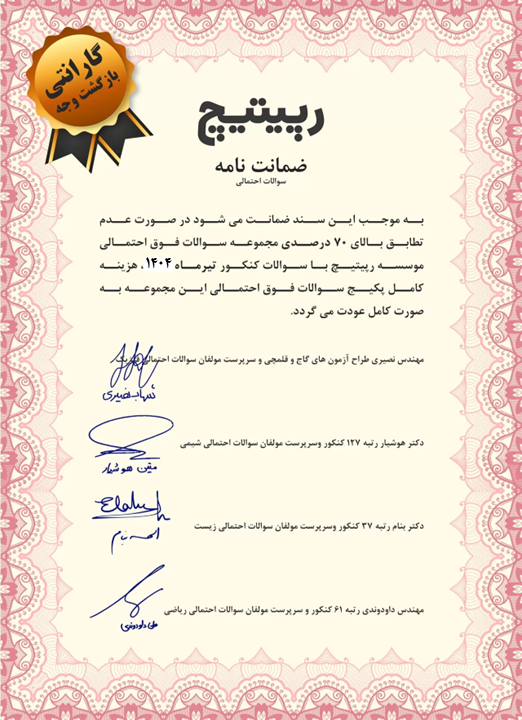 گارانتی
بازگشت وجه
رپیتیچ
ضمانت نامه
سوالات احتمالی
به موجب این سند ضمانت می شود در صورت عدم
تطابق بالای ۷۰ درصدی مجموعه سوالات فوق احتمالی
موسسه رپیتیچ با سوالات کنکور تیرماه ۱۴۰۴، هزینه
کامل پکیج سوالات فوق احتمالی این مجموعه به
صورت کامل عودت می گردد.
مهندس نصیری طراح آزمون های گاج و قلمچی و سرپرست مولفان سوالات احتمالی فیزیک
شهاب نصیری
دکتر هوشیار رتبه ۱۲۷ کنکور وسرپرست مولفان سوالات احتمالی شیمی
متین هوشیار
دکتر بنام رتبه ۳۷ کنکور وسرپرست مولفان سوالات احتمالی زیست
مهندس داودوندی رتبه ۶۱ کنکور و سرپرست مولفان سوالات احتمالی ریاضی
علی داودوندی